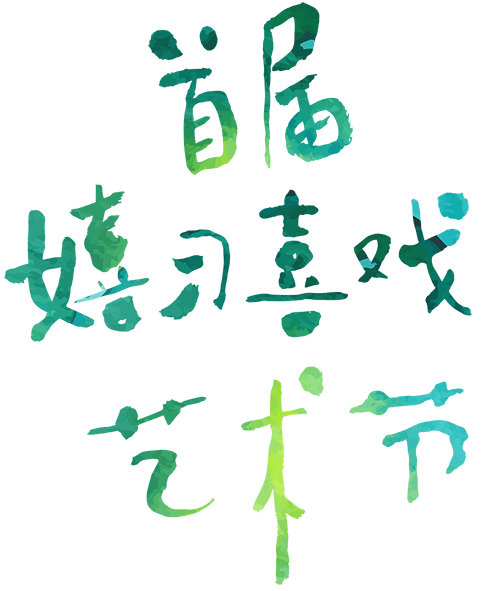 首届
嬉习喜戏
艺术节